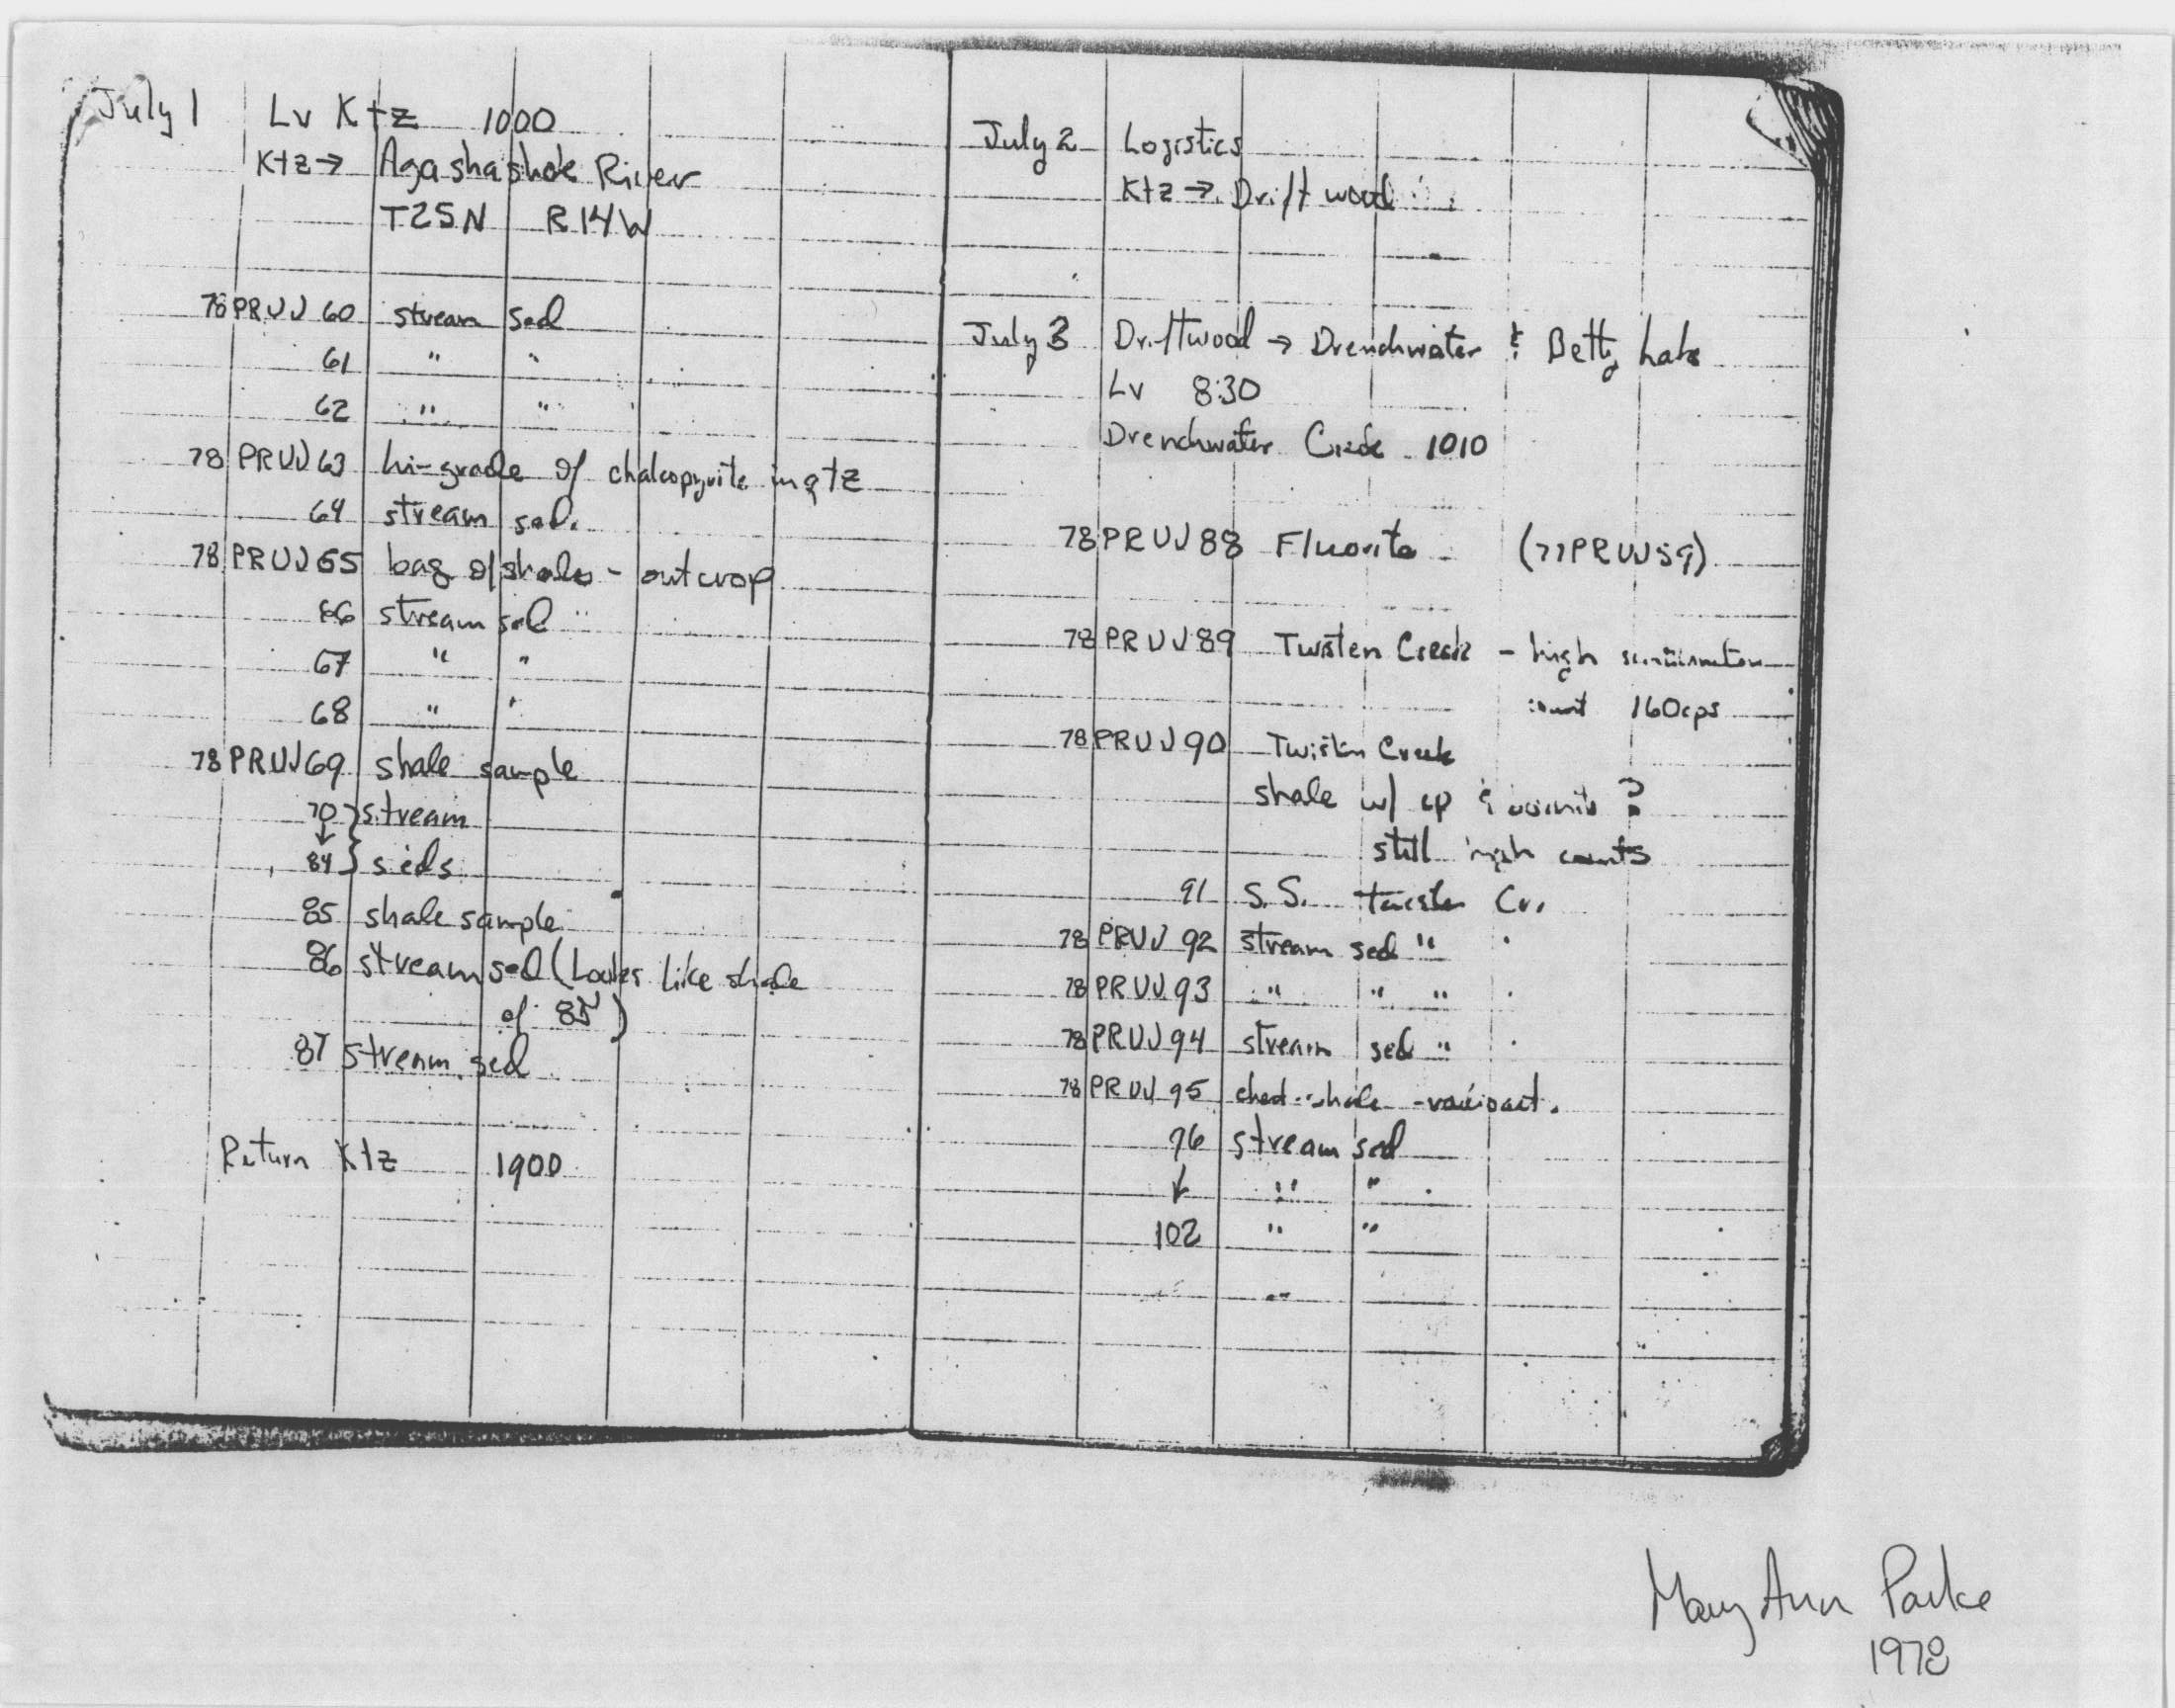 July 1 Lv Ktz 1000
Ktz → Agashashok River
T25N R14W
78PRUJ 60 stream sed
61 " "
62 " "
78 PRUJ 63 hi-grade of chalcopyrite in qtz
64 stream sed.
78 PRUJ 65 bag of shale - outcrop
66 stream sed
67 " "
68 " "
78 PRUJ 69 shale sample
70 } stream
↓
84 } seds
85 shale sample
86 stream sed (Looks like shale
of 85)
87 stream sed
Return Ktz 1900
July 2 Logistics
Ktz → Driftwood
July 3 Driftwood → Drenchwater & Betty Lake
Lv 8:30
Drenchwater Creek 1010
78 PRUJ 88 Fluorite (77PRUJ59)
78 PRUJ 89 Twisten Creek - high
count 160cps
78 PRUJ 90 Twistin Creek
shale w/ cp & ?
still high counts
91 S.S. Cr.
78 PRUJ 92 stream sed "
78 PRUJ 93 " " "
78 PRUJ 94 stream sed "
78 PRUJ 95 shale
96 stream sed
↓ " "
102 " "
Mary Ann Parke
1978